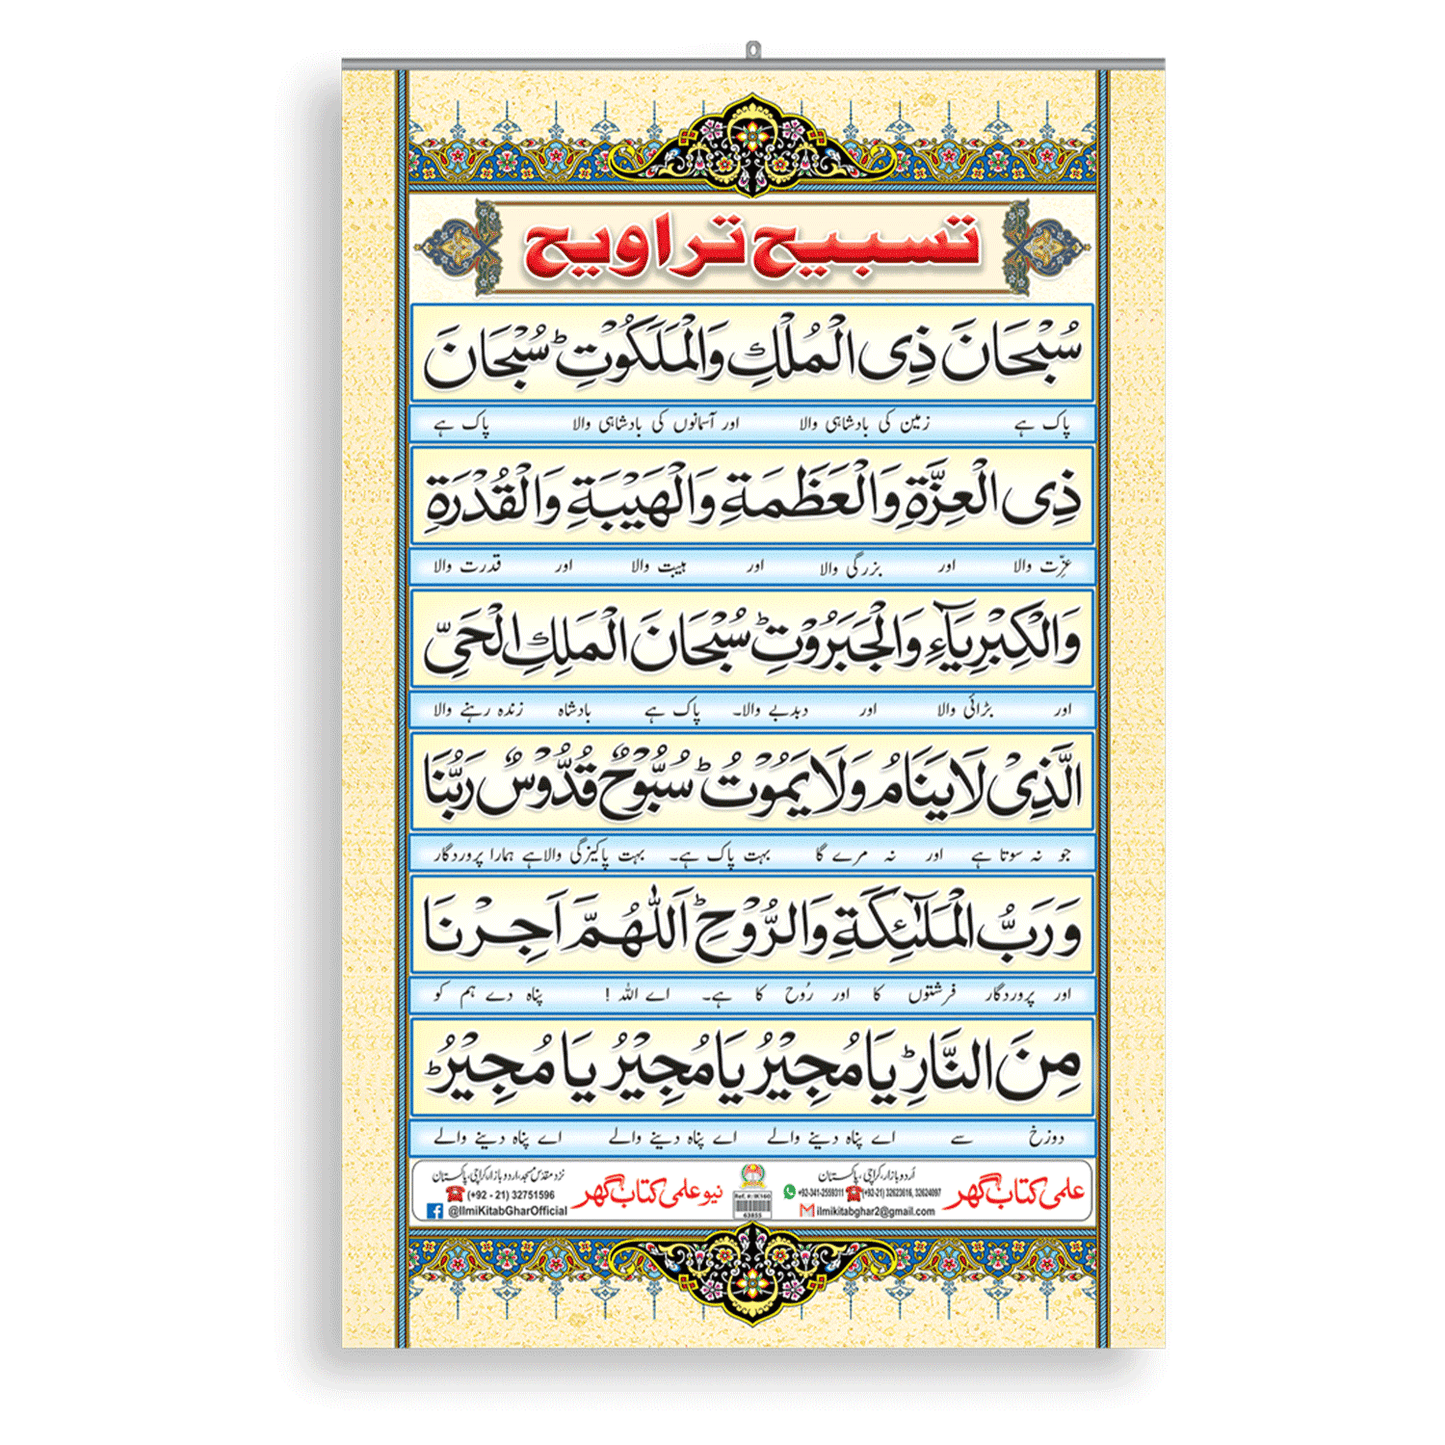 تسبیح تراویح
سُبْحَانَ ذِی الْمُلْكِ وَالْمَلَكُوْتِؕ سُبْحَانَ
پاک ہے زمین کی بادشاہی والا اور آسمانوں کی بادشاہی والا پاک ہے
ذِی الْعِزَّةِ وَالْعَظَمَةِ وَالْهَيْبَةِ وَالْقُدْرَةِ
عزّت والا اور بزرگی والا اور ہیبت والا اور قدرت والا
وَالْكِبْرِيَآءِ وَالْجَبَرُوْتِؕ سُبْحَانَ الْمَلِكِ الْحَیِّ
اور بڑائی والا اور دبدبے والا۔ پاک ہے بادشاہ زندہ رہنے والا
الَّذِیْ لَا یَنَامُ وَلَا یَمُوْتُؕ سُبُّوْحٌ قُدُّوْسٌ رَبُّنَا
جو نہ سوتا ہے اور نہ مرے گا بہت پاک ہے۔ بہت پاکیزگی والا ہے ہمارا پروردگار
وَ رَبُّ الْمَلٰٓئِكَةِ وَالرُّوْحِؕ اَللّٰهُمَّ اَجِرْنَا
اور پروردگار فرشتوں کا اور رُوح کا ہے۔ اے اللہ ! پناہ دے ہم کو
مِنَ النَّارِؕ یَا مُجِیْرُ یَا مُجِیْرُ یَا مُجِیْرُؕ
دوزخ سے اے پناہ دینے والے اے پناہ دینے والے اے پناہ دینے والے
علمی کتاب گھر
اُردو بازار، کراچی، پاکستان
+92-341-2559311 (+92-21) 32623616, 32624097
ilmikitabghar2@gmail.com
Ref. #: IK160
63855
نیو علمی کتاب گھر
نزد مقدس مسجد، اردو بازار، کراچی، پاکستان
(+92 - 21) 32751596
@IlmiKitabGharOfficial